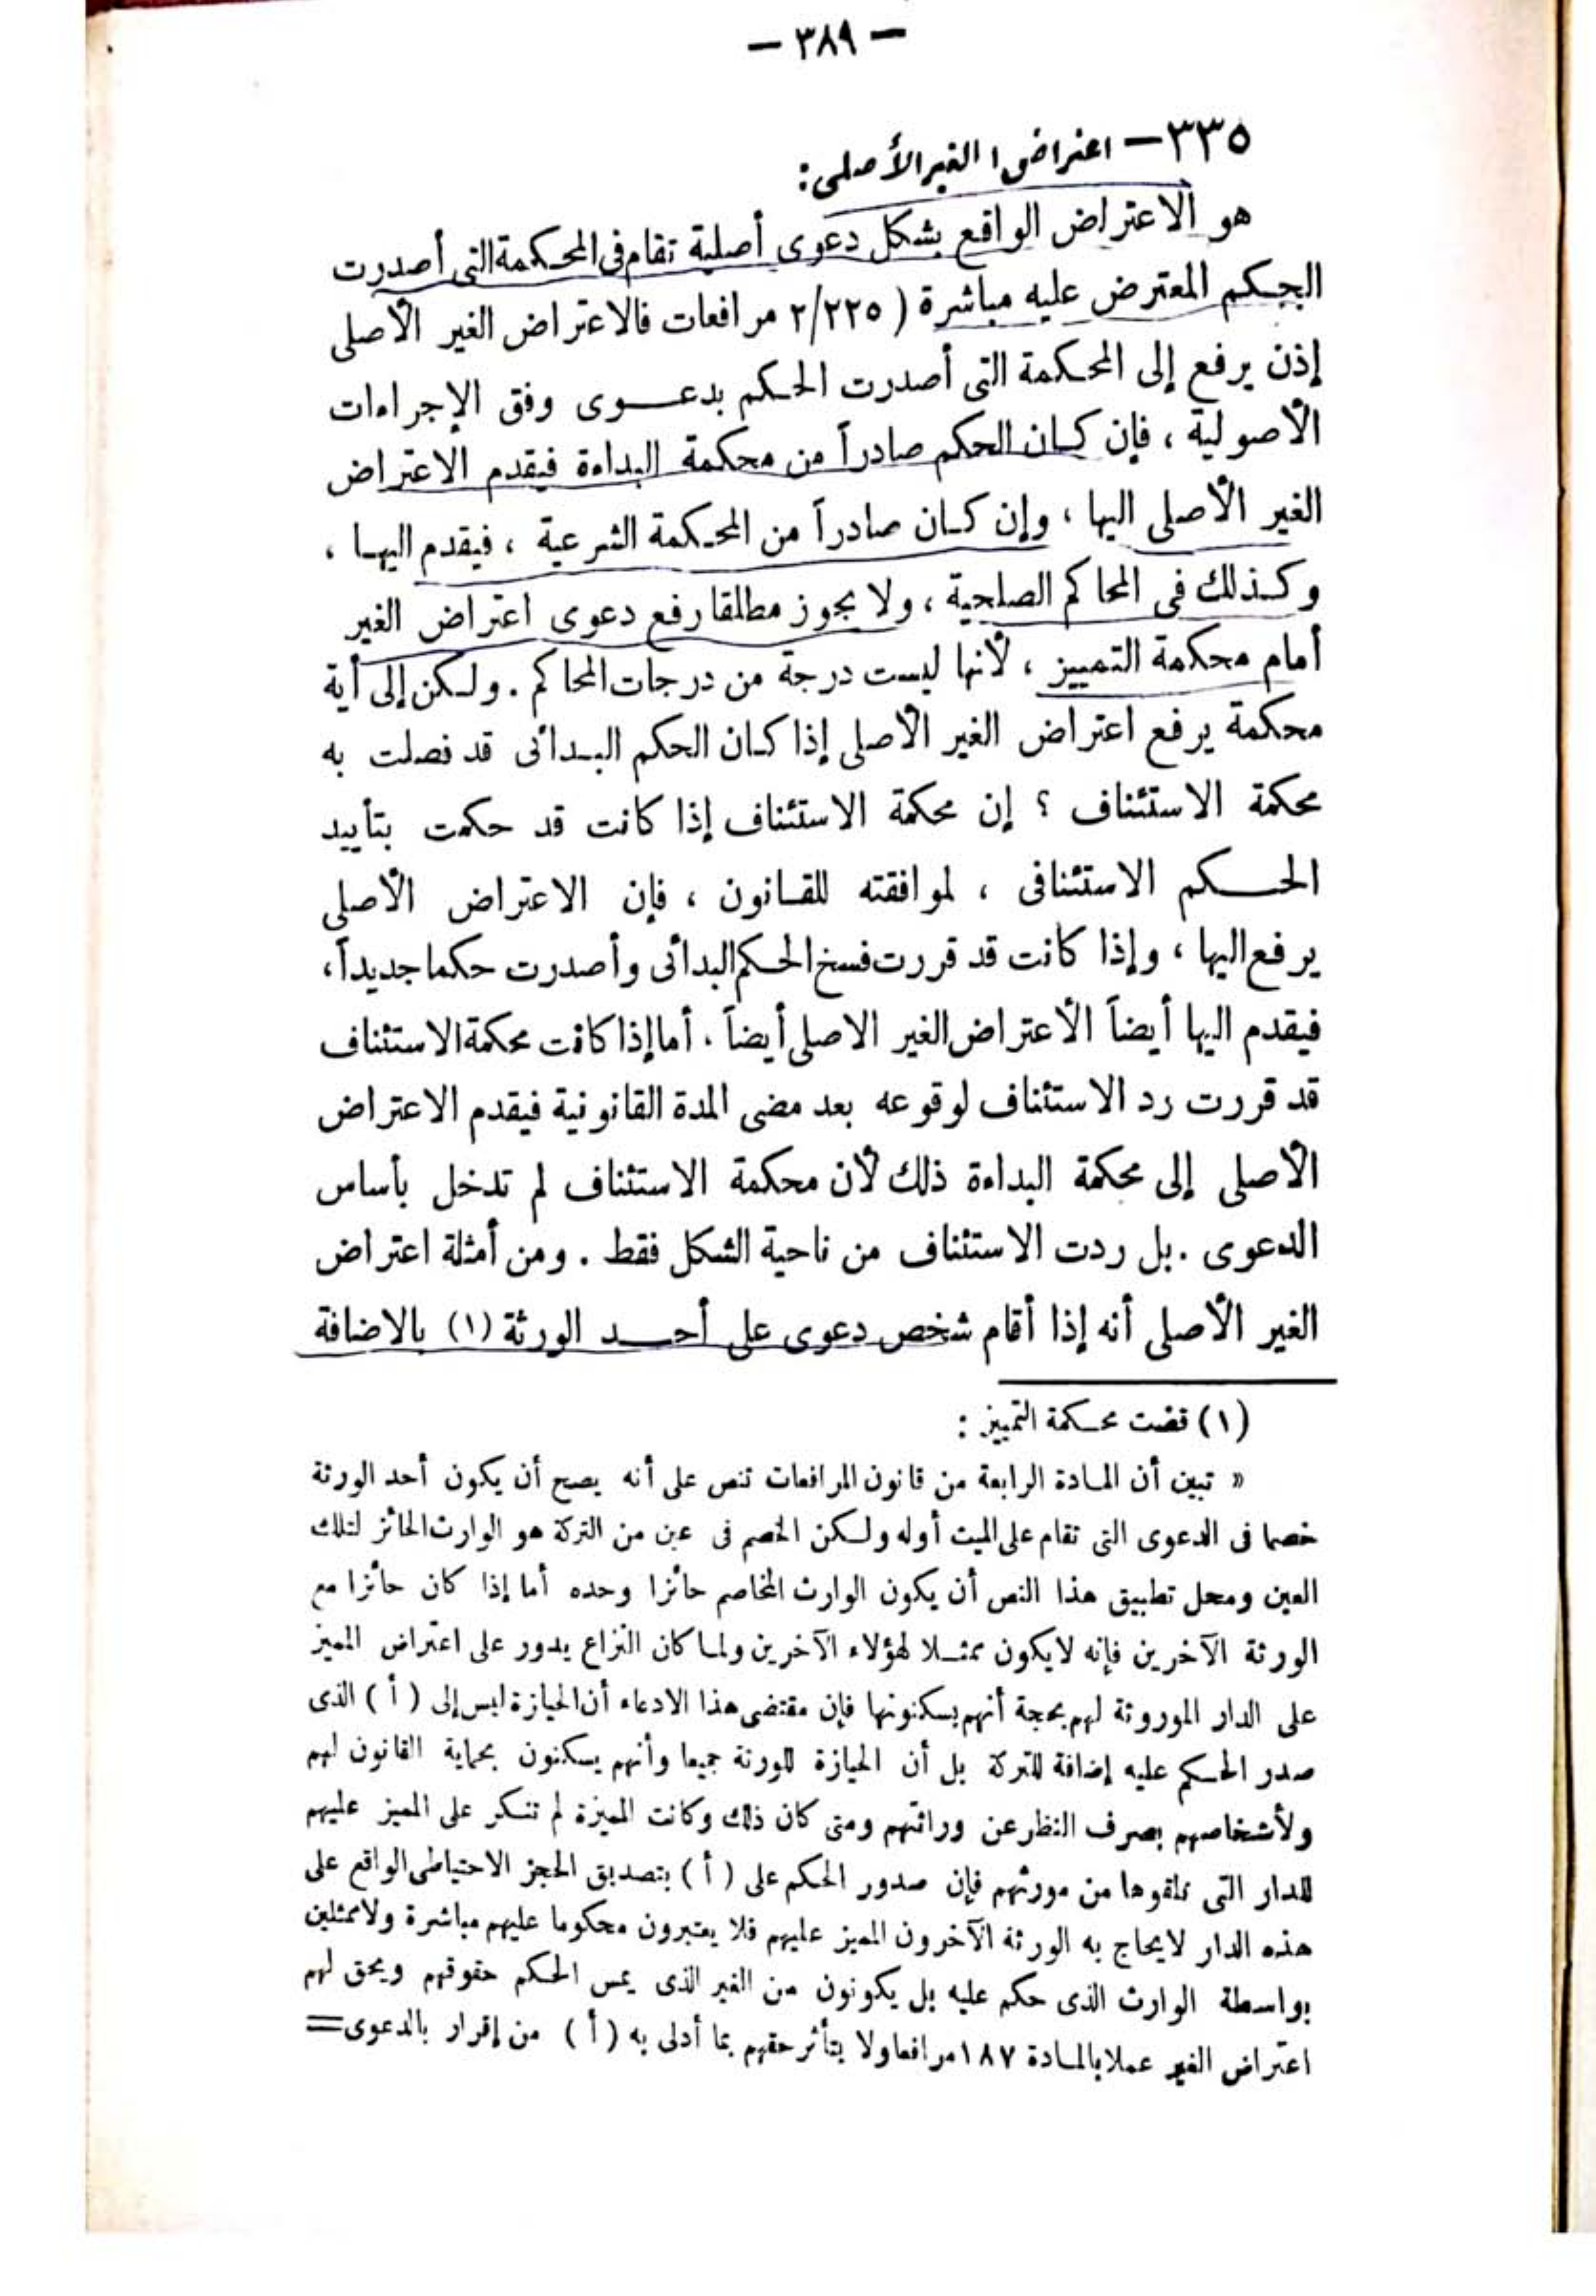 — ٣٨٩ —
٣٣٥ — اعتراض الغير الأصلى :
هو الاعتراض الواقع بشكل دعوى أصلية تقام فى المحكمة التى أصدرت
الحكم المعترض عليه مباشرة ( ٢/٢٢٥ مرافعات فالاعتراض الغير الأصلى
إذن يرفع إلى المحكمة التى أصدرت الحكم بدعوى وفق الإجراءات
الأصولية ، فإن كان الحكم صادراً من محكمة البداءة فيقدم الاعتراض
الغير الأصلى اليها ، وإن كان صادراً من المحكمة الشرعية ، فيقدم اليها ،
وكذلك فى المحاكم الصلحية ، ولا يجوز مطلقا رفع دعوى اعتراض الغير
أمام محكمة التمييز ، لأنها ليست درجة من درجات المحاكم . ولكن إلى أية
محكمة يرفع اعتراض الغير الأصلى إذا كان الحكم البدائى قد فصلت به
محكمة الاستئناف ؟ إن محكمة الاستئناف إذا كانت قد حكمت بتأييد
الحكم الاستئنافى ، لموافقته للقانون ، فإن الاعتراض الأصلى
يرفع اليها ، وإذا كانت قد قررت فسخ الحكم البدائى وأصدرت حكما جديداً ،
فيقدم اليها أيضاً الأعتراض الغير الاصلى أيضاً . أما إذا كانت محكمة الاستئناف
قد قررت رد الاستئناف لوقوعه بعد مضى المدة القانونية فيقدم الاعتراض
الأصلى إلى محكمة البداءة ذلك لأن محكمة الاستئناف لم تدخل بأساس
الدعوى . بل ردت الاستئناف من ناحية الشكل فقط . ومن أمثلة اعتراض
الغير الأصلى أنه إذا أقام شخص دعوى على أحد الورثة (١) بالاضافة
(١) قضت محكمة التمييز :
« تبين أن المادة الرابعة من قانون المرافعات تنص على أنه يصح أن يكون أحد الورثة
خصما فى الدعوى التى تقام على الميت أوله ولكن الخصم فى عين من التركة هو الوارث الحائز لتلك
العين ومحل تطبيق هذا النص أن يكون الوارث المخاصم حائزا وحده أما إذا كان حائزا مع
الورثة الآخرين فإنه لايكون ممثلا لهؤلاء الآخرين ولما كان النزاع يدور على اعتراض المميز
على الدار الموروثة لهم بحجة أنهم يسكنونها فإن مقتضى هذا الادعاء أن الحيازة ليس إلى ( أ ) الذى
صدر الحكم عليه إضافة للتركة بل أن الحيازة للورثة جميعا وأنهم يسكنون بحماية القانون لهم
ولأشخاصهم بصرف النظر عن وراثتهم ومتى كان ذلك وكانت المميزة لم تنكر على المميز عليهم
للدار التى تلقوها من مورثهم فإن صدور الحكم على ( أ ) بتصديق الحجز الاحتياطى الواقع على
هذه الدار لايحاج به الورثة الآخرون المميز عليهم فلا يعتبرون محكوما عليهم مباشرة ولا ممثلين
بواسطة الوارث الذى حكم عليه بل يكونون من الغير الذى يمس الحكم حقوقهم ويحق لهم
اعتراض الغير عملا بالمادة ١٨٧ مرافعا ولا يتأثر حقهم بما أدلى به ( أ ) من إقرار بالدعوى =